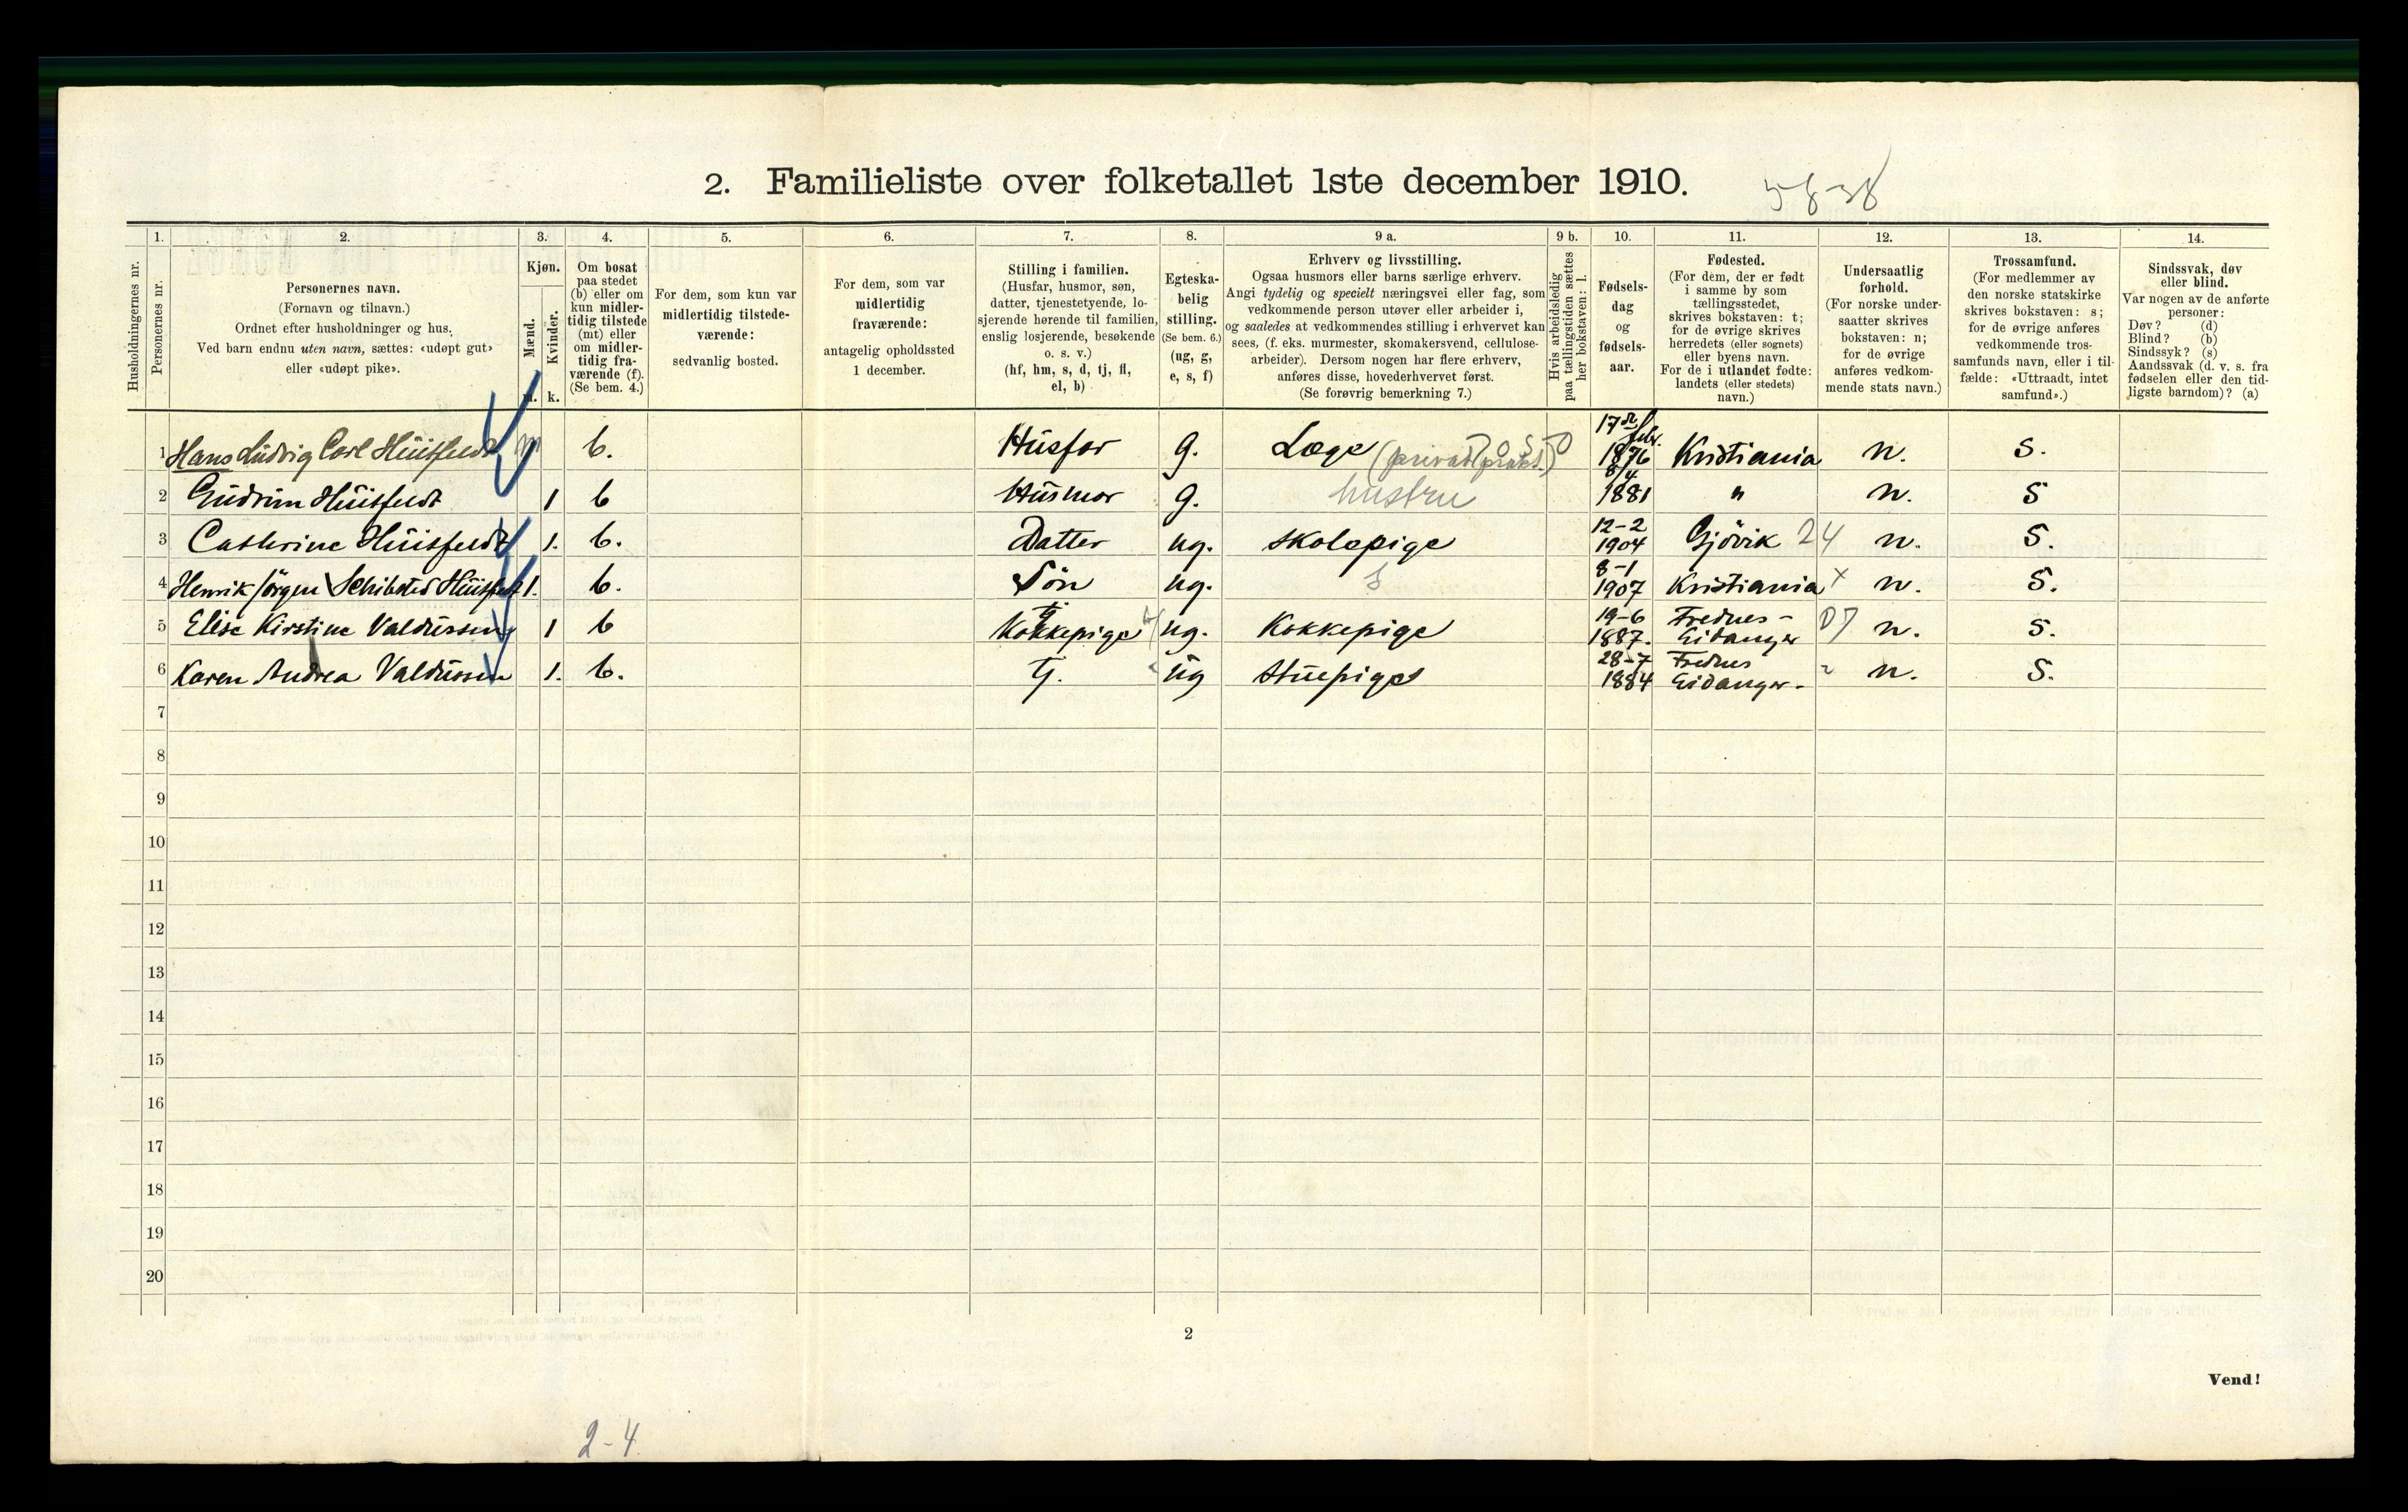 2. Familieliste over folketallet 1ste december 1910.
58-38
Husholdningernes nr.
1.
Personernes nr.
2.
Personernes navn.
(Fornavn og tilnavn.)
Ordnet efter husholdninger og hus.
Ved barn endnu uten navn, sættes: «udøpt gut»
eller «udøpt pike».
3.
Kjøn.
Mænd.
Kvinder.
m. k.
4.
Om bosat
paa stedet
(b) eller om
kun midler-
tidig tilstede
(mt) eller
om midler-
tidig fra-
værende (f).
(Se bem. 4.)
5.
For dem, som kun var
midlertidig tilstede-
værende:
sedvanlig bosted.
6.
For dem, som var
midlertidig
fraværende:
antagelig opholdssted
1 december.
7.
Stilling i familien.
(Husfar, husmor, søn,
datter, tjenestetyende, lo-
sjerende hørende til familien,
enslig losjerende, besøkende
o. s. v.)
(hf, hm, s, d, tj, fl,
el, b)
8.
Egteska-
belig
stilling.
(Se bem. 6.)
(ug, g,
e, s, f)
9 a.
Erhverv og livsstilling.
Ogsaa husmors eller barns særlige erhverv.
Angi tydelig og specielt næringsvei eller fag, som
vedkommende person utøver eller arbeider i,
og saaledes at vedkommendes stilling i erhvervet kan
sees, (f. eks. murmester, skomakersvend, cellulose-
arbeider). Dersom nogen har flere erhverv,
anføres disse, hovederhvervet først.
(Se forøvrig bemerkning 7.)
9 b.
Hvis arbeidsledig
paa tællingstiden sættes
her bokstaven: l.
10.
Fødsels-
dag
og
fødsels-
aar.
11.
Fødested.
(For dem, der er født
i samme by som
tællingsstedet,
skrives bokstaven: t;
for de øvrige skrives
herredets (eller sognets)
eller byens navn.
For de i utlandet fødte:
landets (eller stedets)
navn.)
12.
Undersaatlig
forhold.
(For norske under-
saatter skrives
bokstaven: n;
for de øvrige
anføres vedkom-
mende stats navn.)
13.
Trossamfund.
(For medlemmer av
den norske statskirke
skrives bokstaven: s;
for de øvrige anføres
vedkommende tros-
samfunds navn, eller i til-
fælde: «Uttraadt, intet
samfund».)
14.
Sindssvak, døv
eller blind.
Var nogen av de anførte
personer:
Døv? (d)
Blind? (b)
Sindssyk? (s)
Aandssvak (d. v. s. fra
fødselen eller den tid-
ligste barndom)? (a)
1 Hans Ludvig Carl Huitfeldt m b. Husfar g. Læge (privat prakt.) 17de febr. 1876 Kristiania n. s.
2 Gudrun Huitfeldt 1 b Husmor g. hustru 8/4 1881 " n. s
3 Cathrine Huitfeldt 1. b. Datter ug. skolepige 12-2 1904 Gjövik 24 n. s.
4 Henrik Jörgen Schibsted Huitfeldt 1. b. Sön ug. s 8-1 1907 Kristiania x n. s.
5 Elise Kirstine Valdussen 1 b tj. Kokkepige ug. Kokkepige 19-6 1887. Frednes - Eidanger 07 n. s.
6 Karen Andrea Valdussen 1. b. tj. ug Stuepige 28-7 1884 Frednes Eidanger - n. s.
7
8
9
10
11
12
13
14
15
16
17
18
19
20
2
Vend!
2-4